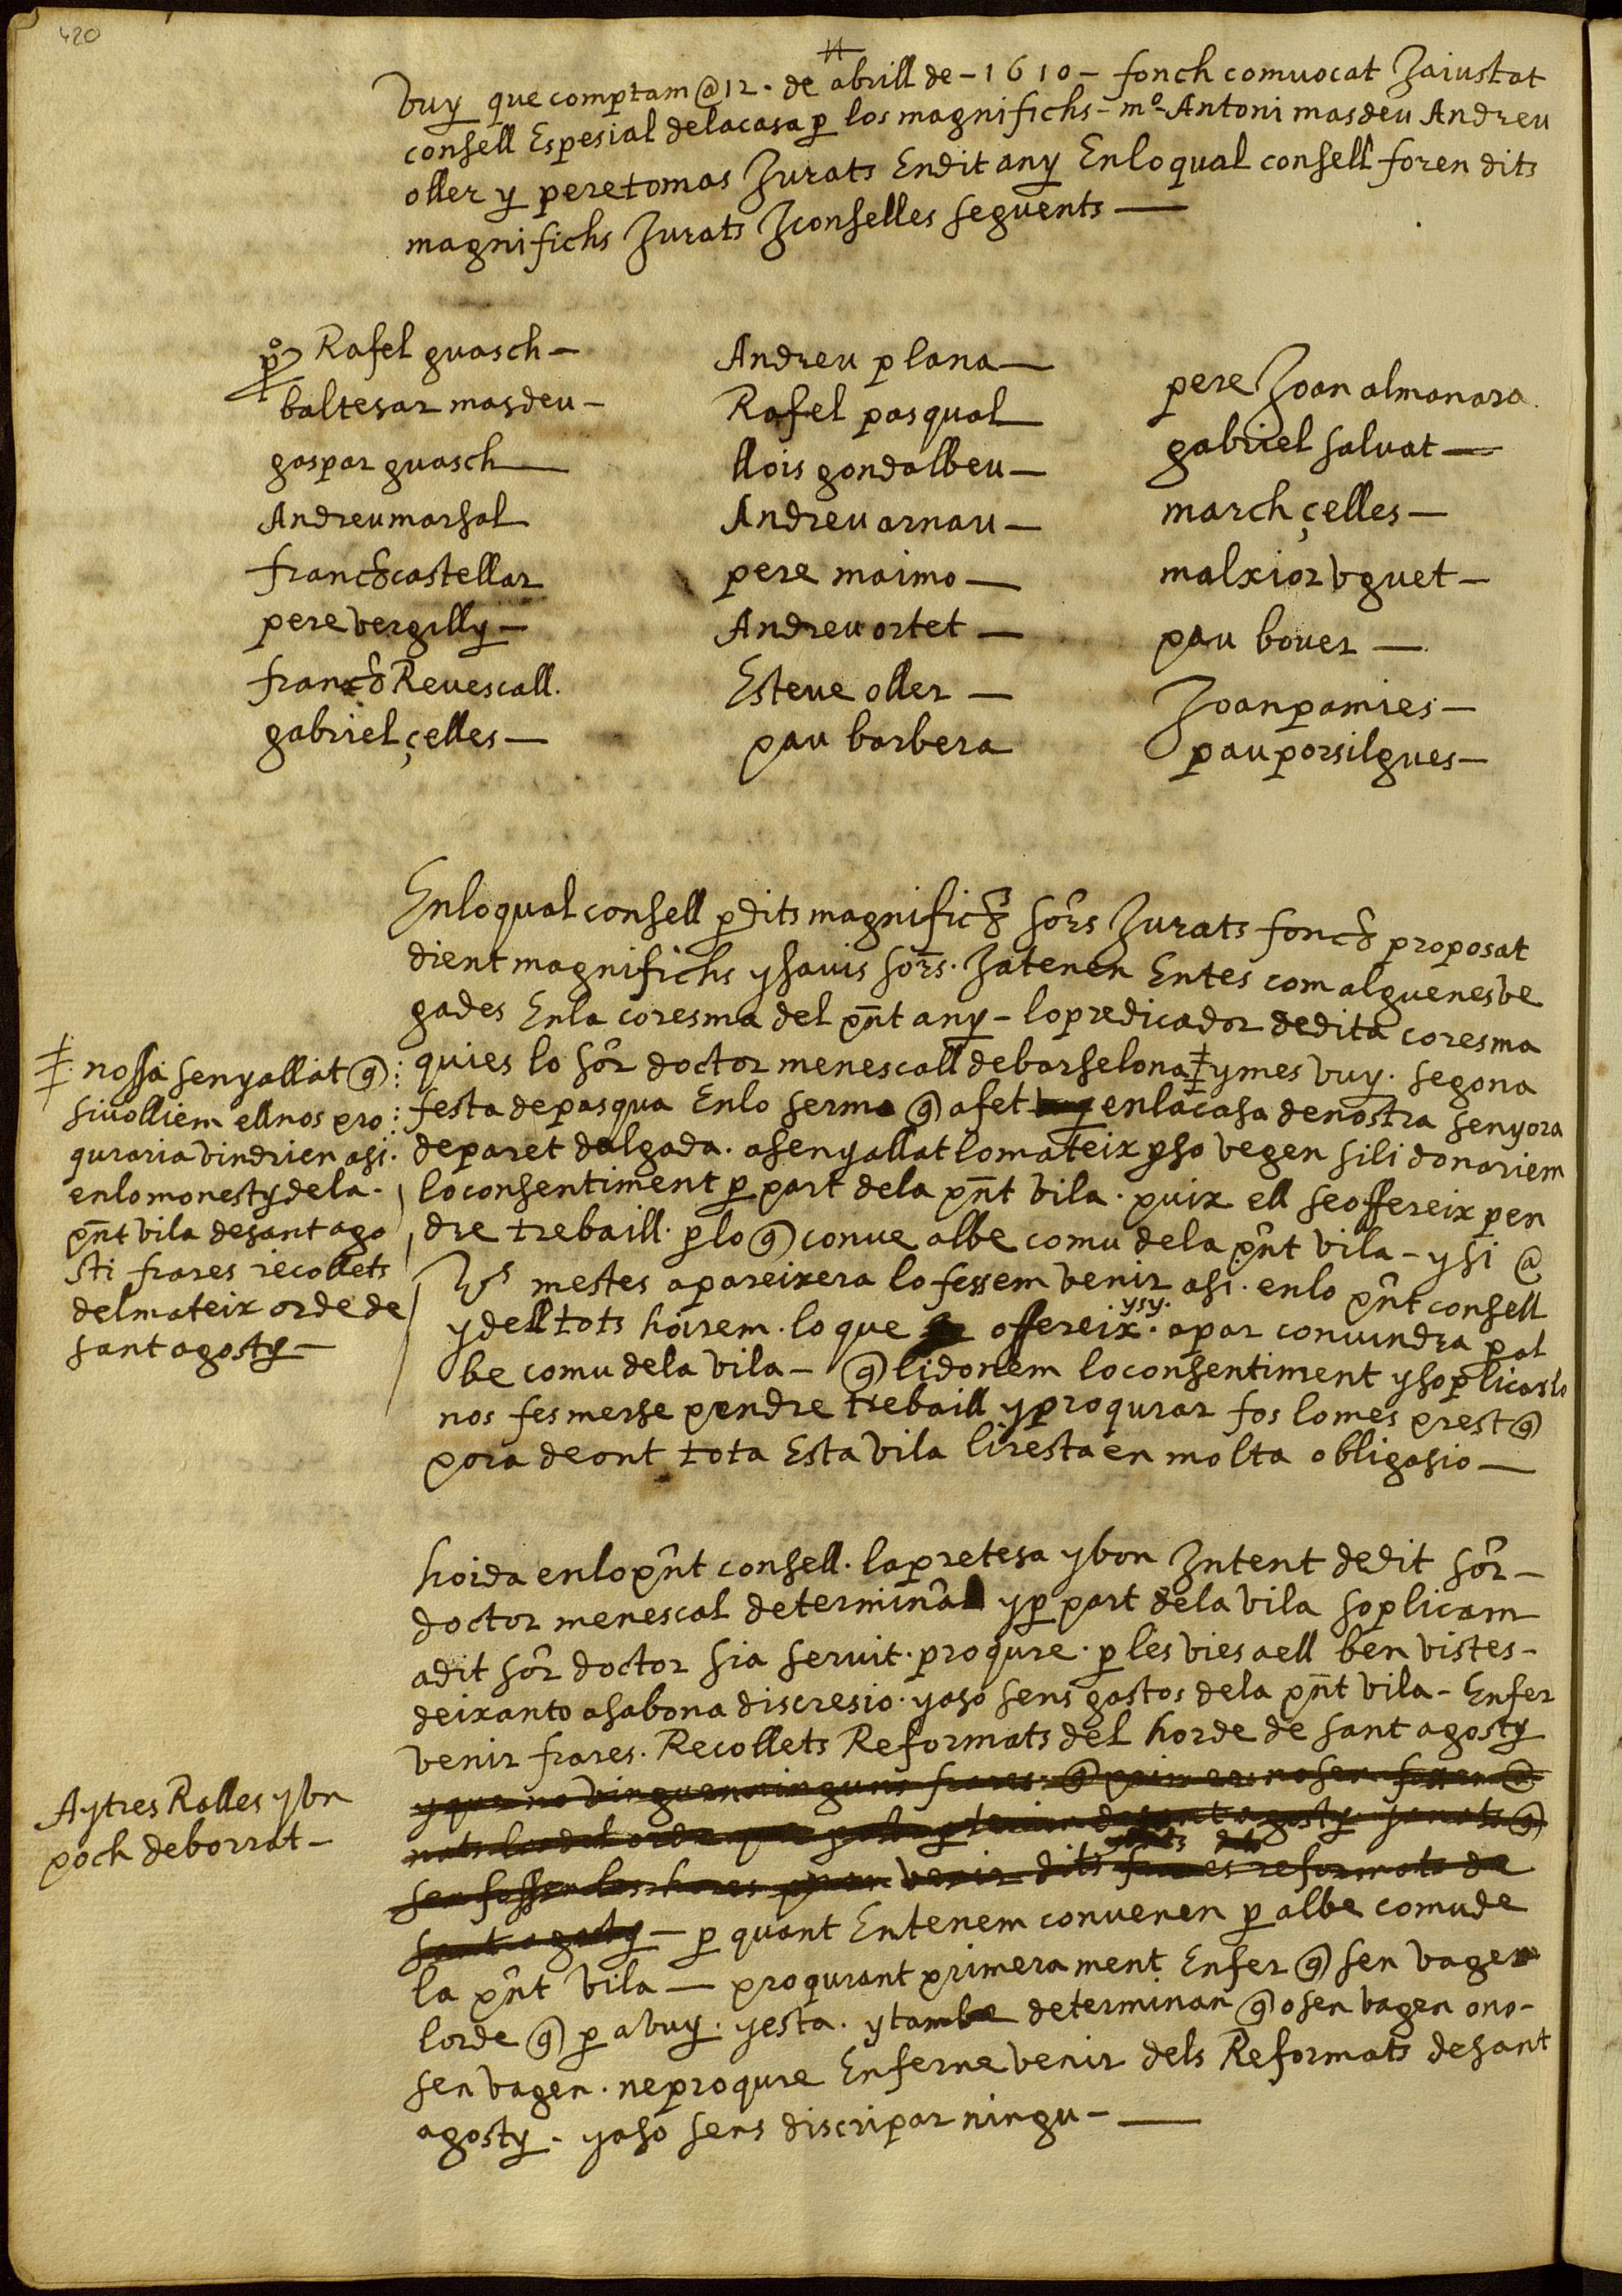 420
Vuy que comptam @ 12 · de abrill de - 1610 - fonch comvocat Jaiustat
consell Espesial delacasa p los magnifichs - mº Antoni masdeu Andreu
oller y peretomas Jurats Endit any Enloqual consell foren dits
magnifichs Jurats Jconselles seguents —
Rafel guasch —
baltesar masdeu -
gaspar guasch —
Andreu marsal
franch castellar
pere vergilly —
franch Revescall.
gabriel çelles —
Andreu plana —
Rafel pasqual
llois gondalbeu —
Andreu arnau —
pere maimo —
Andreu ortet —
Esteve oller —
pau barbera
pere Joan almanara
gabriel salvat —
march çelles —
malxior vguet —
pau bover —
Joan pamies —
pau porsilgues —
Enloqual consell p dits magnifichs sors Jurats fonch proposat
dient magnifichs ysavis sors. Jatenen Entes com alguenes ve
gades Enla coresma del pnt any - lo predicador dedita coresma
quies lo sor doctor menescall debarselona ‡ ymes vuy. segona
festa depasqua Enlo serma q afet vuy enlacasa denostra senyora
deparet dalgada. asenyallat lomateix pso vegen sili donariem
loconsentiment p part dela pnt vila. puix ell seoffereix pen
dre trebaill. plo q conve albe comu dela pnt vila - ysi @
mestes apareixera lo fessem venir asi. enlo pnt consell
ydell tots hoirem. lo que offereix. ysy. apar convindra p al
be comu dela vila — q lidonem loconsentiment ysoplicaslo
nos fes merse pendre trebaill yproqurar fos lomes prest q
pora deont tota Esta vila liresta en molta obligasio —
‡ nossa senyallat q
sivolliem ellnos pro
quraria vindrien asi.
enlomonesty dela
pnt vila desant ago
sti frares recollets
delmateix orde de
sant agosty —
hoida enlo pnt consell. lapretesa ybon Intent dedit sor —
doctor menescal determina yp part dela vila soplicam
adit sor doctor sia servit. proqure. p les vies aell ben vistes -
deixanto asabona discresio. yaso sens gastos dela pnt vila - Enfer
venir frares. Recollets Reformats del horde de sant agosty
yque no vinguen ninguns frares. q primer nosen fossen
sen fossen venir dits frares reformats de
sant agosty — p quant Entenem convenen p albe comude
la pnt vila — proqurant primerament Enfer q sen vagen
lorde q p avuy. yesta. ytambe determinan q osen vagen ono -
sen vagen. neproqure Enferne venir dels Reformats desant
agosty. yaso sens discripar ningu —
Aytres Ralles yvn
poch deborrat —